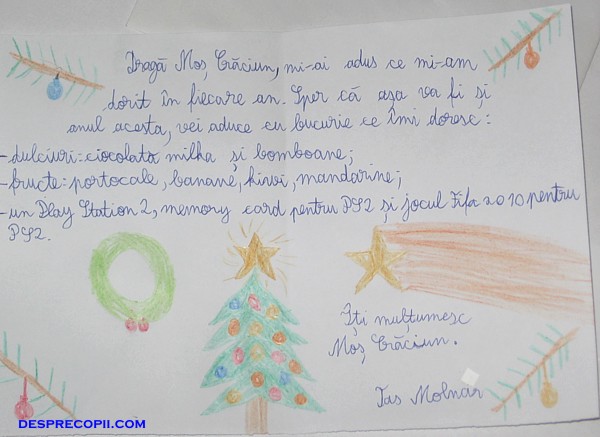 Dragă Moș Crăciun, mi-ai adus ce mi-am
dorit în fiecare an. Sper că așa va fi și
anul acesta, vei aduce cu bucurie ce îmi doresc:
-dulciuri: ciocolata milka și bomboane;
-fructe: portocale, banane, kiwi, mandarine;
-un Play Station 2, memory card pentru PS2 și jocul Fifa 2010 pentru
PS2.
Îți mulțumesc
Moș Crăciun.
Tas Molnar
DESPRECOPII.COM